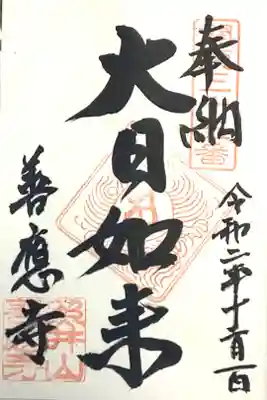 奉納
令和二年十一月一日
大日如来
善應寺